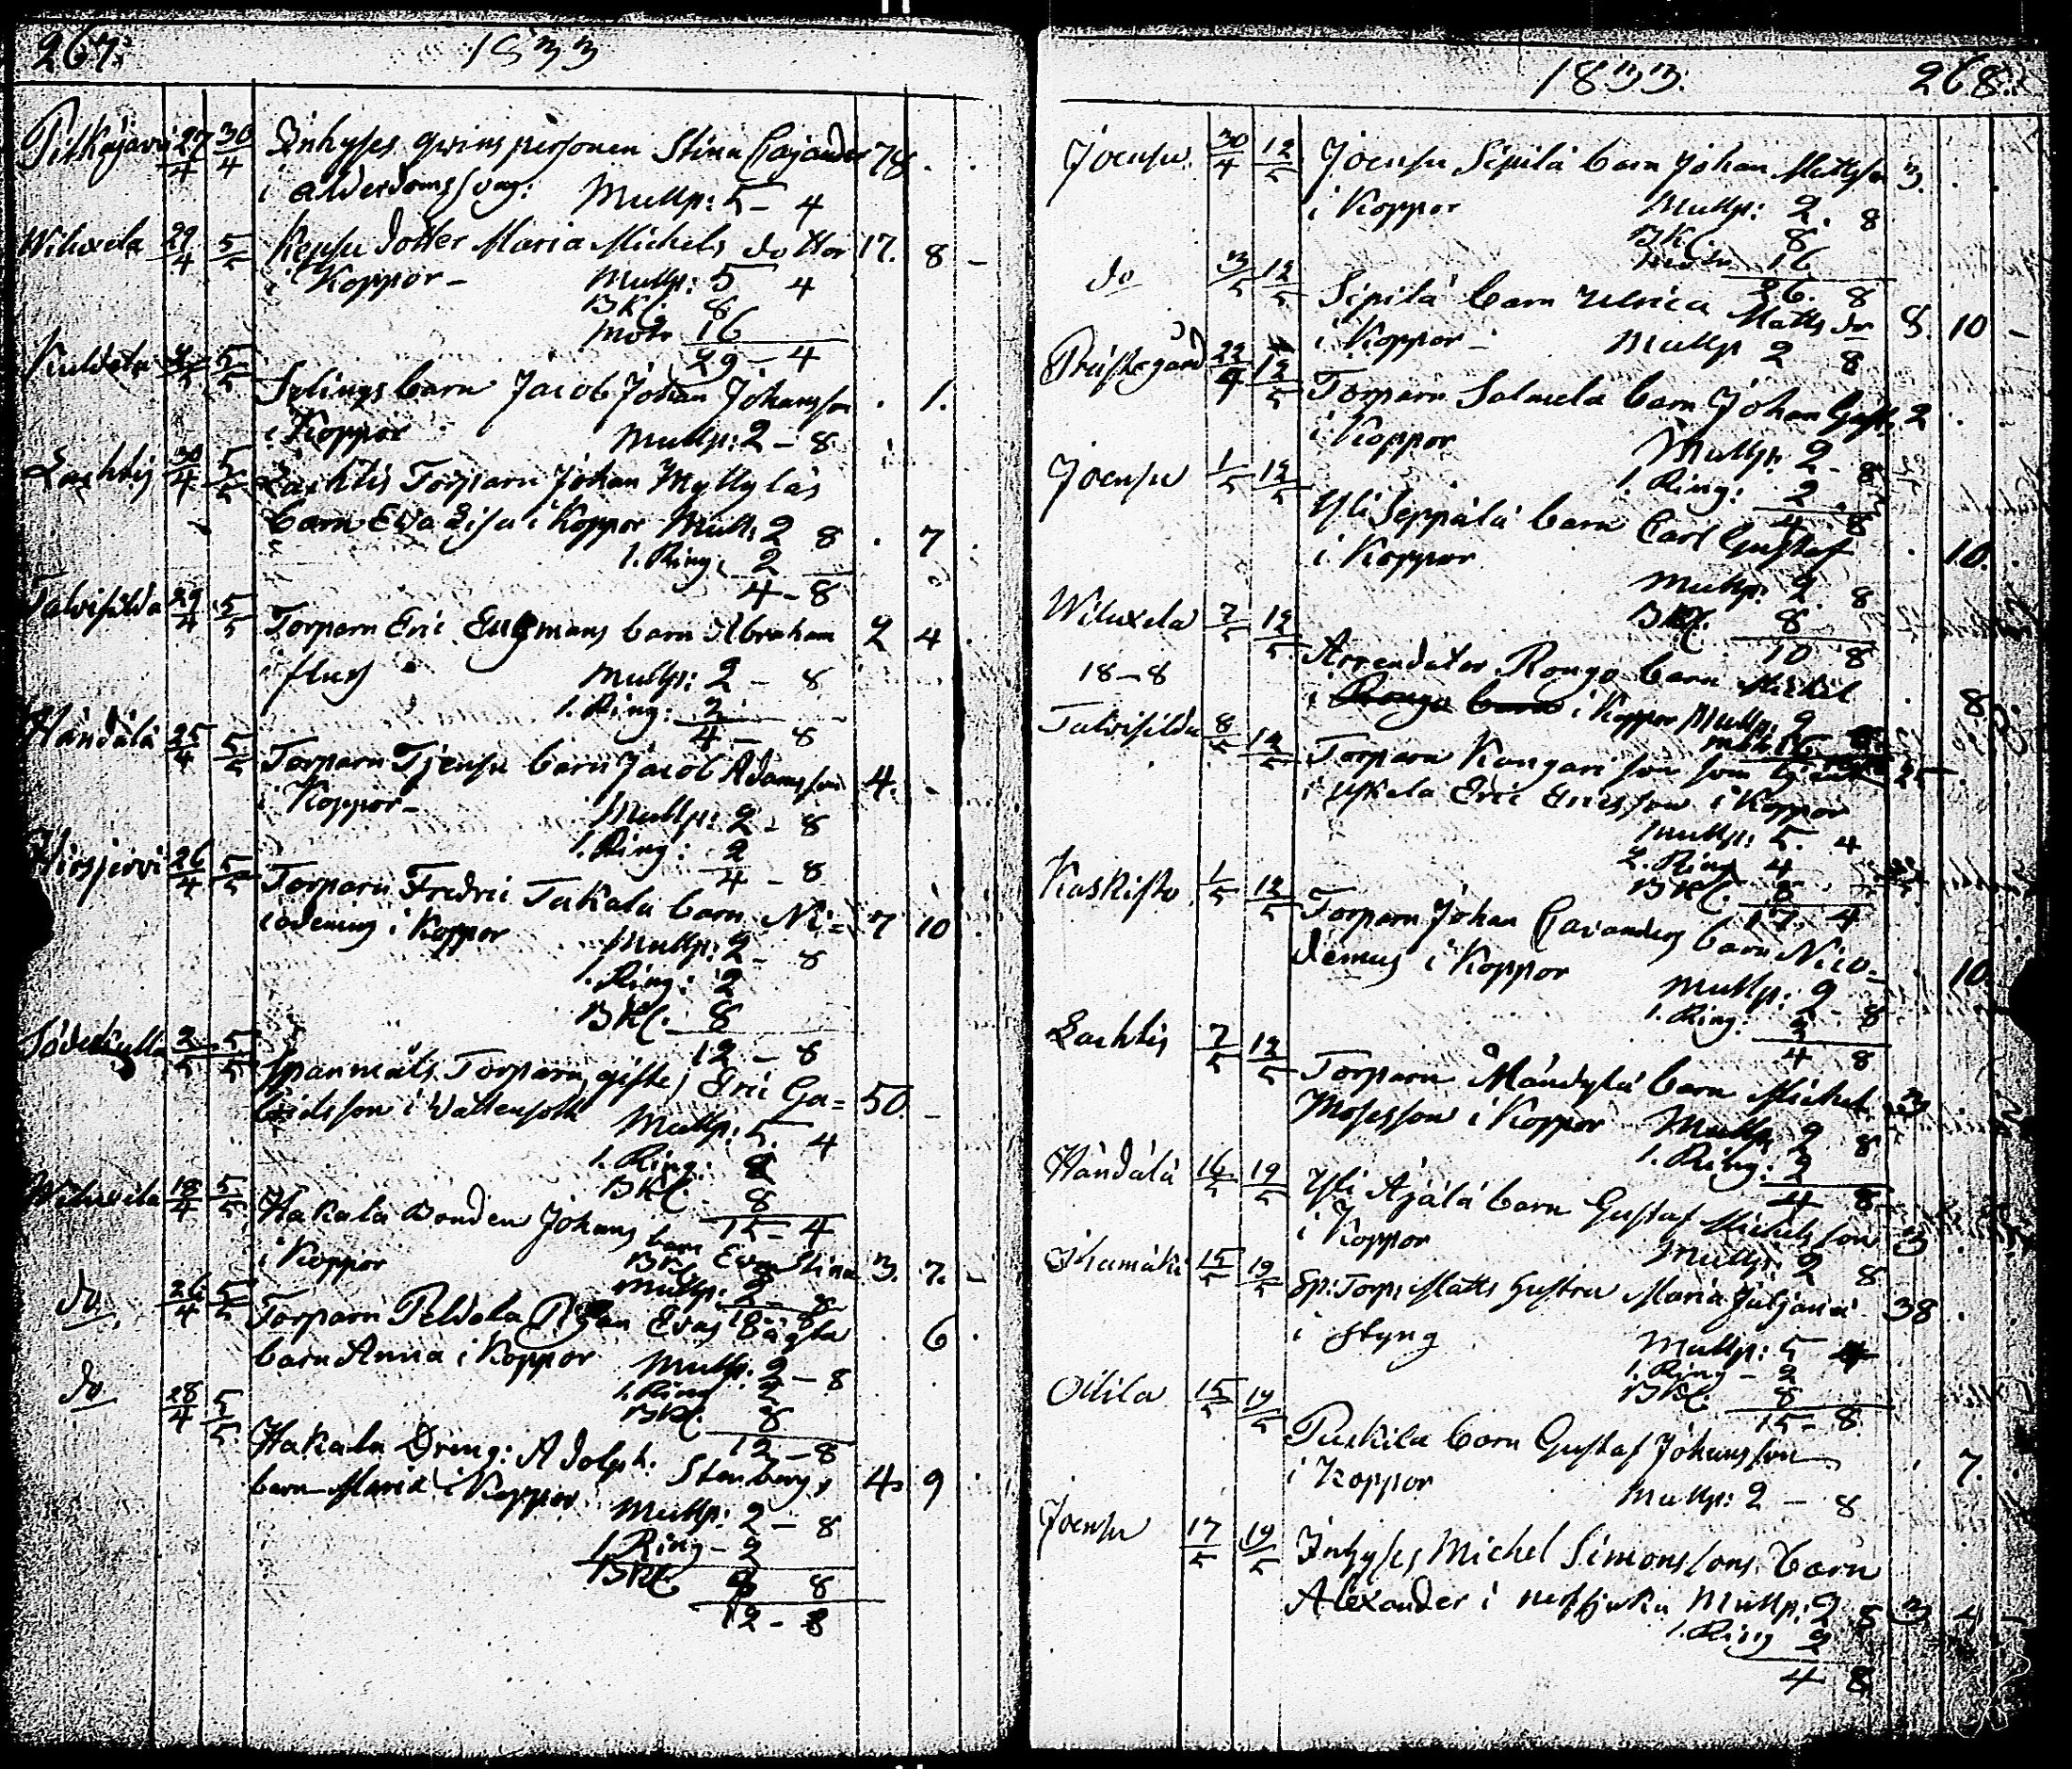 267. 1833
Pitkäjärvi 27/4 30/4 Inhyses qvinspersonen Stina Cajander 78. .
i ålderdomssvag: Mullp: 5 - 4
Wiluxela 29/4 5/5 Keppu dotter Maria Michels dotter 17. 8 -
i Koppor - Mullp: 5 4
BKl. 8
Moln 16
29 - 4
5/5 barn Jacob Johan Johansson . 1.
i Koppor Mullp: 2 - 8
Lachtis 30/4 5/5 Lachtis Torparn Johan Myllyläs
barn Eva Lisa i Koppor Mull: 2 8 . 7 .
1. Ring: 2
4 - 8
Talvisilda 29/4 5/5 Torparn Eric Engmans barn Abraham 2 4 .
i fluss Mullp: 2 - 8
1. Ring: 2
4 - 8
Händälä 25/4 5/5 Torparn Tjensu barn Jacob Adamsson 4. .
i Koppor - Mullp: 2 - 8
1. Ring: 2
4 - 8
Hirsjervi 26/4 5/5 Torparn Fredric Takala barn Ni= 7 10 .
codemus i Koppor Mullp: 2 - 8
1. Ring: 2
BKl. 8
12 - 8
Söderkulla 2/5 5/5 Torparn, giftes Eric Ga= 50. -
brielsson i Vattensot Mullp: 5. 4
1. Ring: 2
BKl. 8
15 - 4
Wiluxela 18/4 5/5 Hakala Bonden Johans barn Eva Stina 3. 7. -
i Koppor BKl. 8
Mullp: 2 - 8
10 - 8
do 26/4 5/5 Torparn Peldola Pigan Evas oägta . 6 .
barn Anna i Koppor Mullp. 2 - 8
1. Ring 2
BKl. 8
12 - 8
do 28/4 5/5 Hakala Dreng: Adolph: Stenbergs 4. 9 .
barn Maria i Koppor Mullp: 2 - 8
1. Ring - 2
BKl. 8 8
12 - 8
1833. 268.
Joensu 30/4 12/5 Joensu Sipilä barn Johan Mattsson 3. .
i Koppor Mullp: 2. 8
BKl. 8
Moln 16
26. 8
do 3/5 12/5 Sipilä barn Ulrica Matts dr 8. 10 -
i Koppor - Mullp 2 8
Prästegård 22/4 12/5 Torparn Salmela barn Johan Gust. 2 .
i Koppor Mullp. 2 - 8
1. Ring: 2
4 8
Joensu 1/5 12/5 Yli Seppälä barn Carl Gustaf . 10.
i Koppor Mullp: 2 8
BKl. 8
10 8
Wiluxela 7/5 12/5 Arrendator Rongo barn Michel . 8
18-8 i Rongo barn i Koppor Mullp: 2 8
Moln 16
Talvisilda 8/5 12/5 Torparn Kangari son som tjent 25 .
i Uskela Eric Ericsson i Koppor
Mullp: 5. 4
2. Ring 4
BKl. 8
17. 4
Kaskisto 1/5 12/5 Torparn Johan Cavanders barn Nico= . 10
demus i Koppor Mullp: 2 - 8
1. Ring: 2
4 8
Lachtis 7/5 12/5 Torparn Mändylä barn Michel 3 .
Mosesson i Koppor Mullp 2 8
1. Ring: 2
4 8
Händälä 14/5 19/5 Yli Äjälä barn Gustaf Michelsson 3 .
i Koppor Mullp. 2 8
Ihamäki 15/5 19/5 Sp: Torp: Matts hustru Maria Juljana 38 .
i styng Mullp: 5 4
1. Ring - 2
BKl. 8
15 - 8.
Oilila 15/5 19/5 Puckila barn Gustaf Johansson . 7.
i Koppor Mullp: 2 - 8
Joensu 17/5 19/5 Inhyses Michel Simonssons barn
Alexander i Mullp: 2 8 3 4 -
1. Ring 2
4 8.